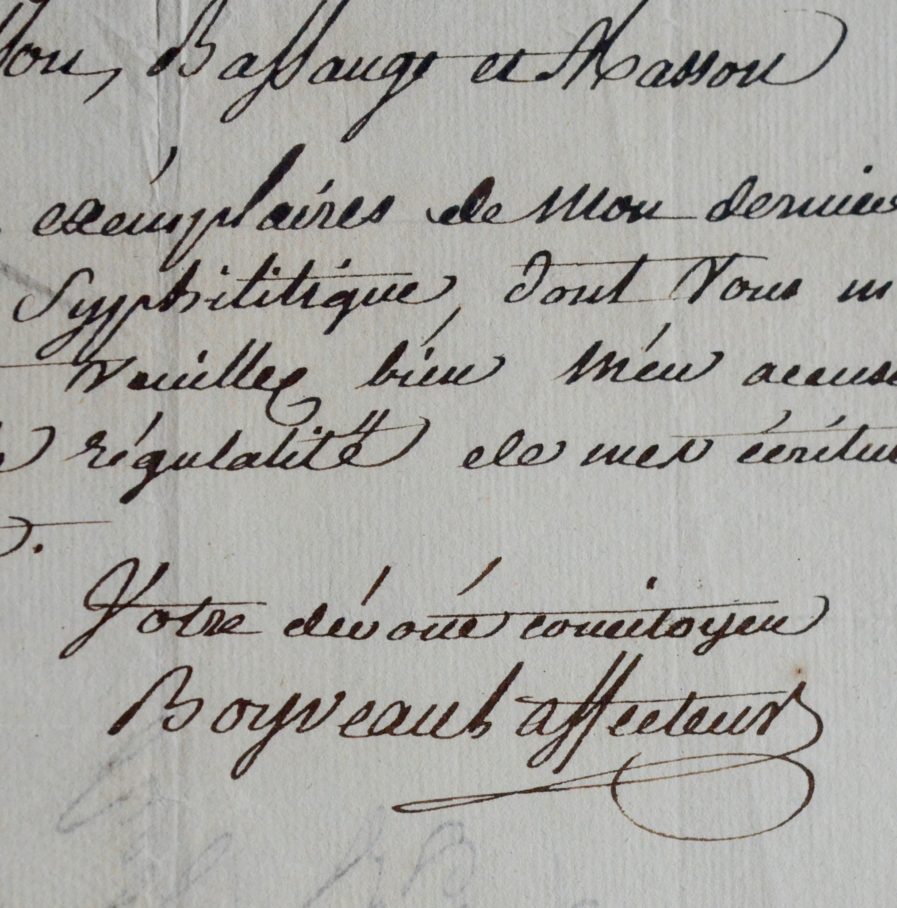 sson, Bassange et Masson
exémplaires de mon dernier
Syphilitique, dont vous m
veuillez bién m'én accuse
régulalité de mes écritu
Votre dévoué concitoyen
Boyveau Laffecteur